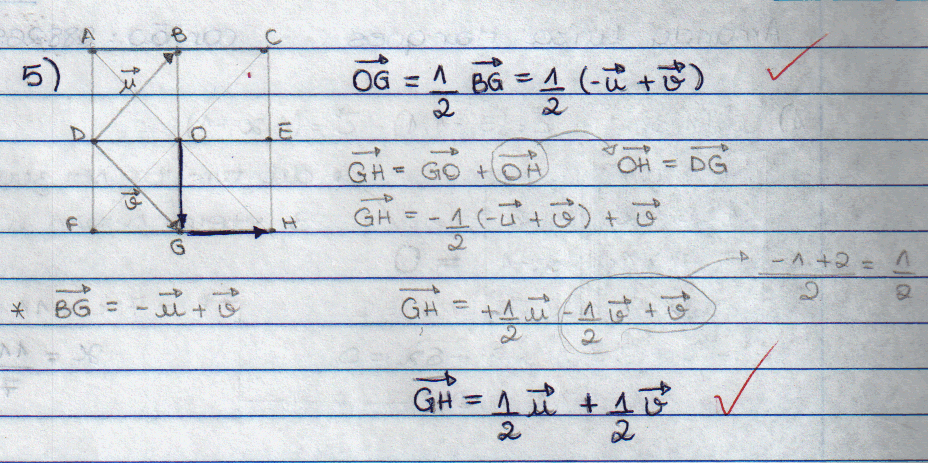 A B C
5) $\vec{u}$ $\overrightarrow{OG} = \frac{1}{2} \overrightarrow{BG} = \frac{1}{2} (-\vec{u} + \vec{v})$
D O E
$\overrightarrow{GH} = \overrightarrow{GO} + \overrightarrow{OH}$ $\overrightarrow{OH} = \overrightarrow{DG}$
$\vec{v}$
F G H
$\overrightarrow{GH} = -\frac{1}{2} (-\vec{u} + \vec{v}) + \vec{v}$
$\frac{-1+2}{2} = \frac{1}{2}$
* $\overrightarrow{BG} = -\vec{u} + \vec{v}$ $\overrightarrow{GH} = +\frac{1}{2} \vec{u} - \frac{1}{2} \vec{v} + \vec{v}$
$\overrightarrow{GH} = \frac{1}{2} \vec{u} + \frac{1}{2} \vec{v}$